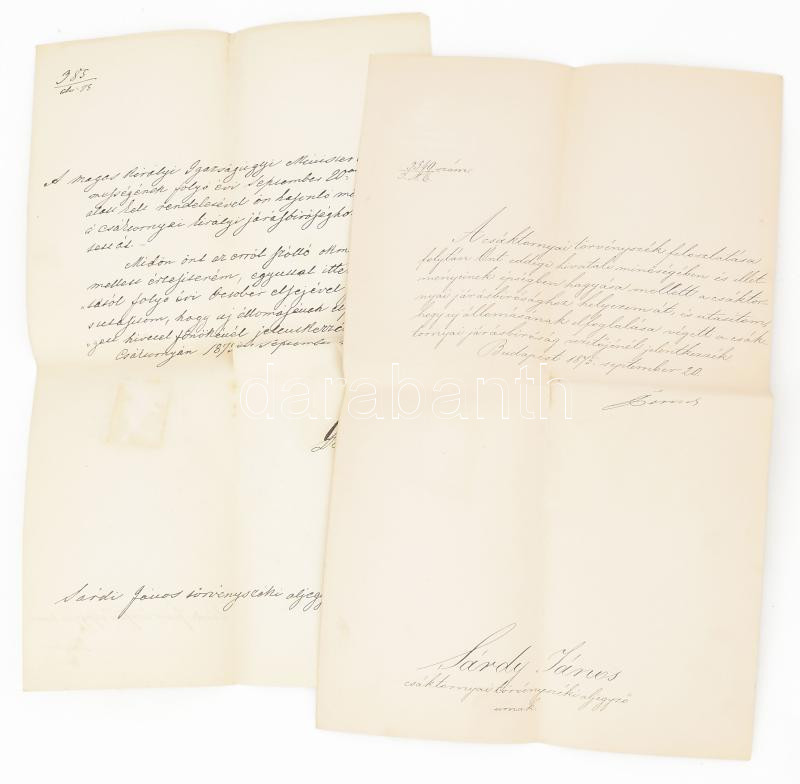 983
eln. 73
A magas Királyi Igazságügyi Miniszter
mességének folyó évi September 20-án
alatt kelt rendeletével ön hasonló mi
a csáktornyai királyi járásbirósághoz
tetett.
Midőn önt az erről szóló okm
mellett értesiteném, egyuttal
folyó évi October elsejével
hogy uj állomásának elf
főnökénél jelentkezzé
Csáktornyán 1873 September
Sárdi János törvényszéki aljegy
szám
I. M. E.
A csáktornyai törvényszék feloszlatása
folytán Önt eddigi hivatali minőségében és illet
ményeinek épségben hagyása mellett a csáktor
nyai járásbirósághoz helyezem át, és utasitom,
hogy uj állomásának elfoglalása végett a csák
tornyai járásbiróság vezetőjénél jelentkezzék
Budapest 1873. september 20.
darabanth
Sárdy János
csáktornyai törvényszéki aljegyző
urnak